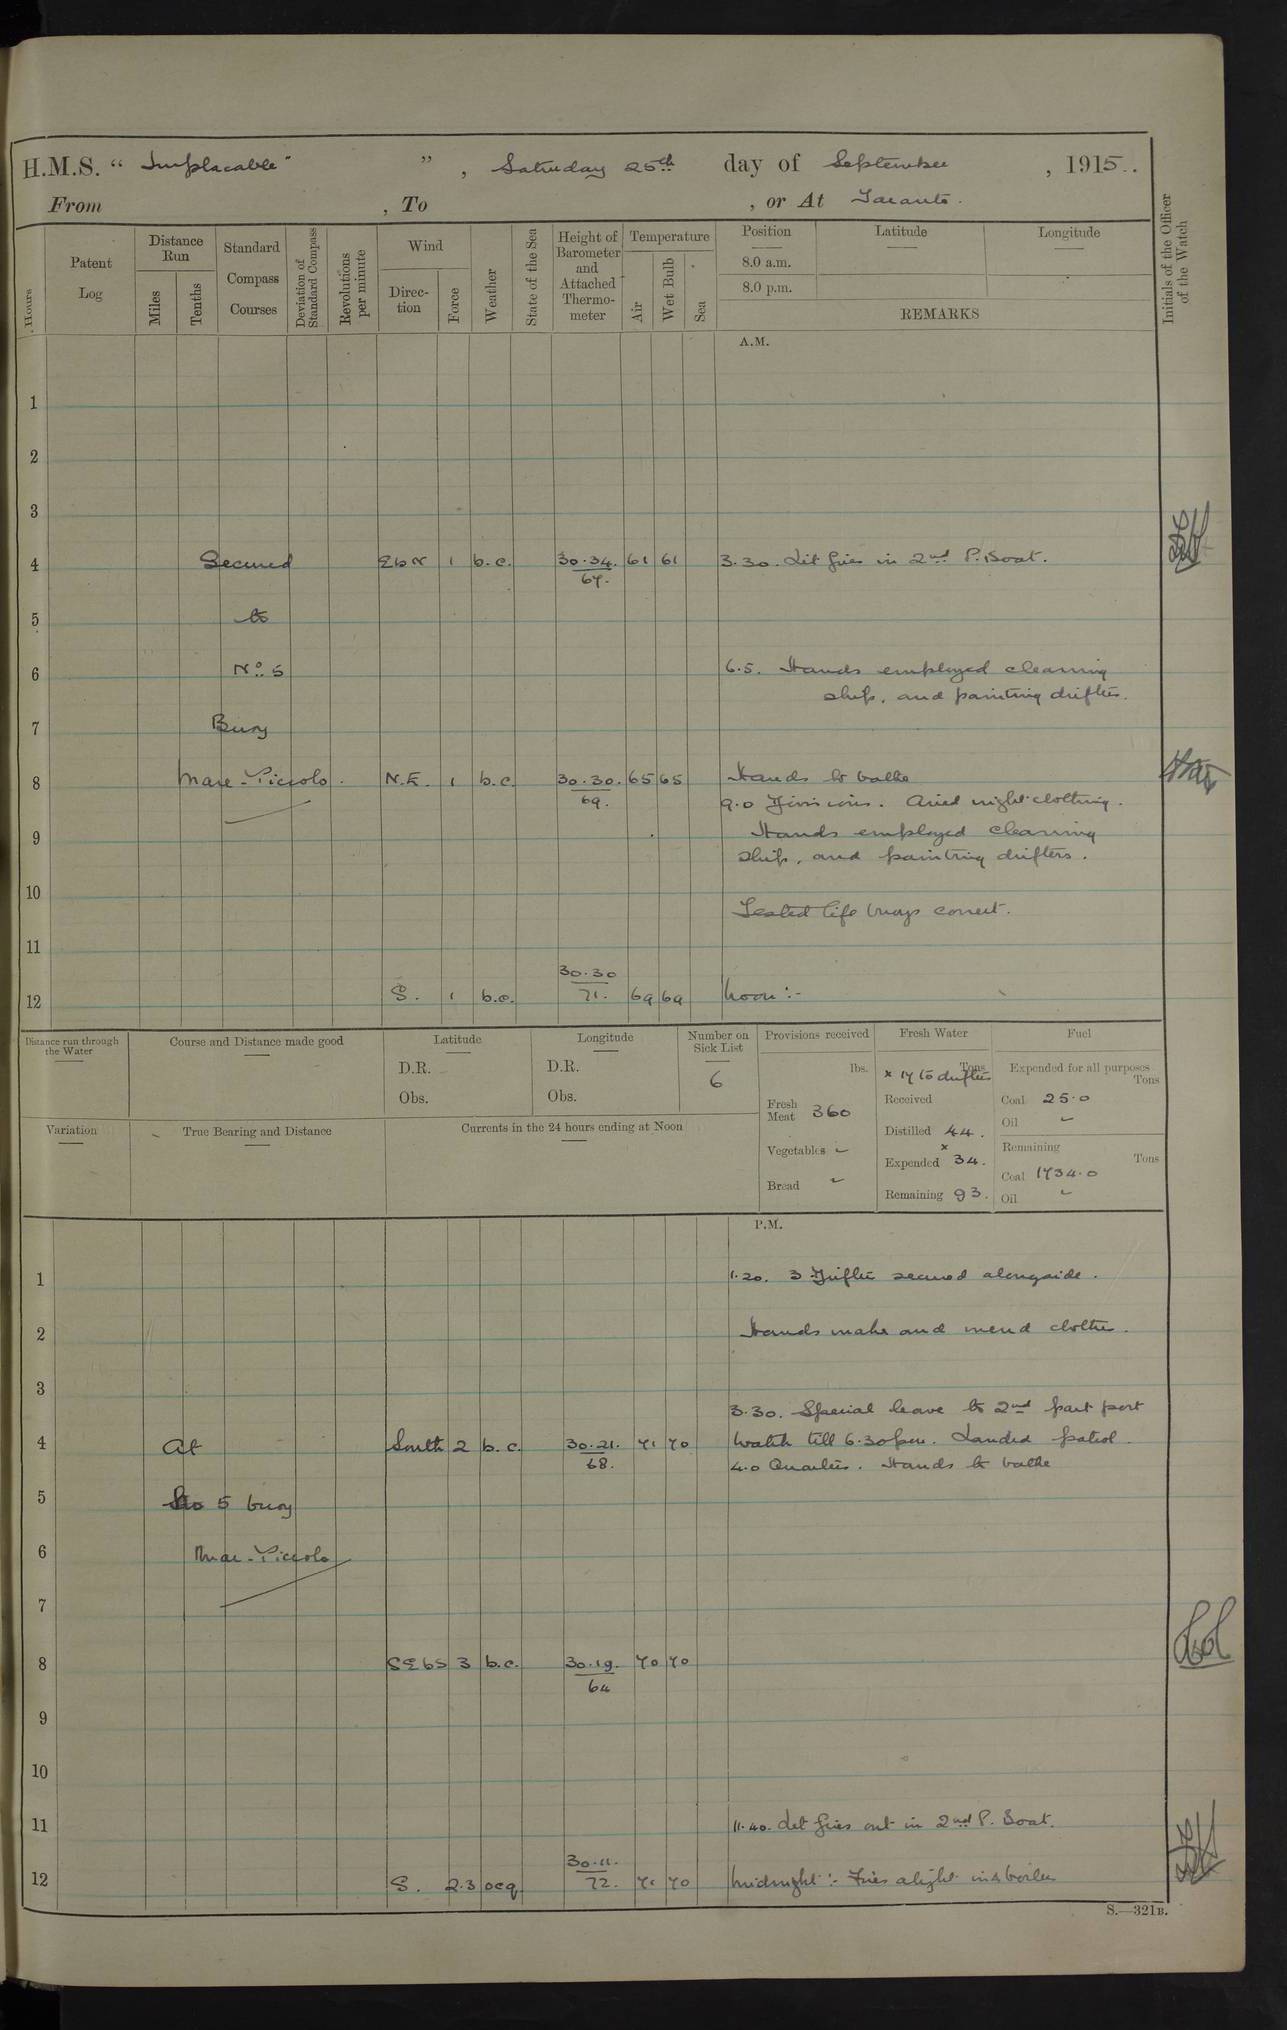 H.M.S. " Implacable " , Saturday 25th day of September , 1915.
From , To , or At Taranto.
Hours
Patent Log
Distance Run
Miles
Tenths
Standard Compass Courses
Deviation of Standard Compass
Revolutions per minute
Wind
Direc-tion
Force
Weather
State of the Sea
Height of Barometer and Attached Thermo-meter
Temperature
Air
Wet Bulb
Sea
Position
8.0 a.m.
8.0 p.m.
Latitude
Longitude
REMARKS
Initials of the Officer of the Watch
A.M.
1
2
3
4 Secured E b N 1 b.c. 30.34. 67. 61 61 3.30. Lit fires in 2nd P. Boat.
5 to
6 No. 5 6.5. Hands employed cleaning
ship, and painting drifters.
7 Buoy
8 Mare-Piccolo. N.E. 1 b.c. 30.30. 69. 65 65 Hands to bathe
9.0 Divisions. Aired night clothing.
9 Hands employed cleaning
ship, and painting drifters.
10
Tested life buoys correct.
11
12 S. 1 b.c. 30.30 71. 69 69 Noon :-
Distance run through the Water
Course and Distance made good
Latitude
D.R.
Obs.
Longitude
D.R.
Obs.
Number on Sick List
6
Provisions received
lbs.
Fresh Meat 360
Vegetables ~
Bread ~
Fresh Water
Tons
x 17 to drifters
Received
Distilled 44.
Expended x 34.
Remaining 93.
Fuel
Expended for all purposes
Tons
Coal 25.0
Oil ~
Remaining
Tons
Coal 1734.0
Oil ~
Variation
True Bearing and Distance
Currents in the 24 hours ending at Noon
P.M.
1 1.20. 3 Drifters secured alongside.
2 Hands make and mend clothes.
3
3.30. Special leave to 2nd part port
4 At South 2 b.c. 30.21. 68. 71 70 watch till 6.30pm. Landed patrol.
4.0 Quarters. Hands to bathe
5 No 5 buoy
6 Mar-Piccolo
7
8 SE b S 3 b.c. 30.19. 64 70 70
9
10
11 11.40. Let fires out in 2nd P. Boat.
12 S. 2.3 ocq. 30.11. 72. 71 70 Midnight :- Fires alight in boiler
S.—321B.